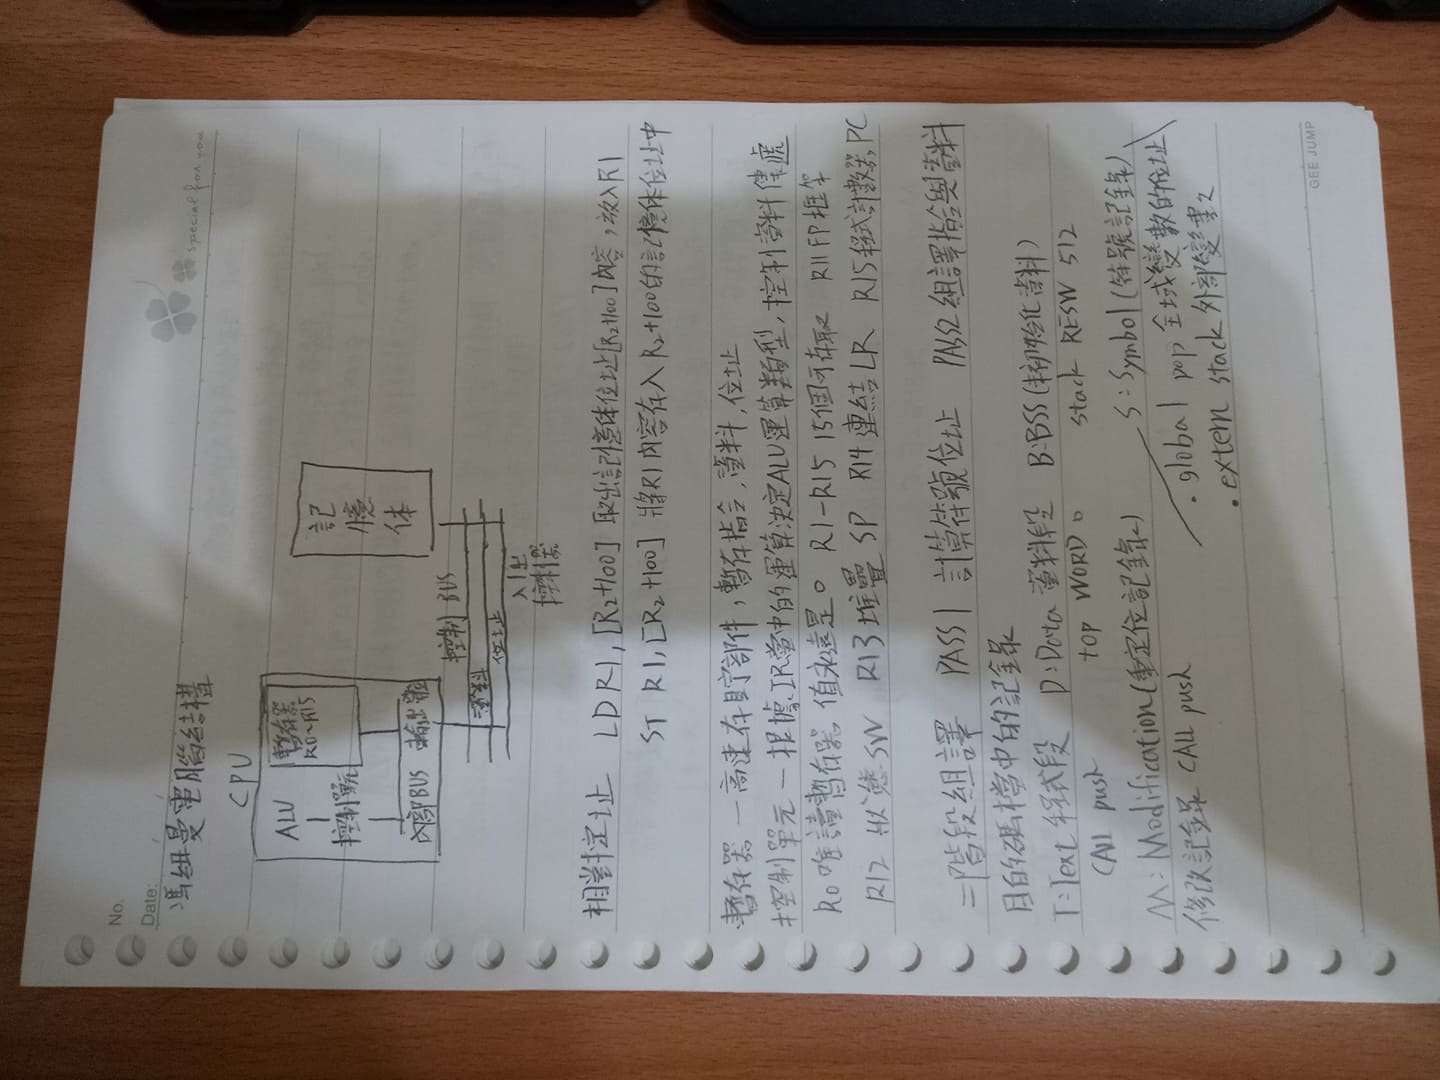 No.
Date:
special for you
馮紐曼電腦結構
CPU
ALU
暫存器
R0~R15
控制單元
內部BUS 輸出
記憶体
控制 BUS
資料
位址
入/出
控制器
相對定址 LD R1, [R2+100] 取出記憶体位址[R2+100]內容,放入R1
ST R1, [R2+100] 將R1內容存入R2+100的記憶体位址中
暫存器－高速存貯部件,暫存指令,資料,位址
控制單元－根據IR當中的運算決定ALU運算類型,控制資料傳處
R0唯讀暫存器 值永遠是0 R1-R15 15個可存取 R11 FP框架
R12 狀態SW R13堆疊 SP R14 連結LR R15程式計數器PC
二階段組譯 PASS1 計算符號位址 PASS2組譯指令與資料
目的碼檔中的記錄
T:Text 程式段 D:Data 資料段 B:BSS(未初始化資料)
CAll push top WORD 0 stack RESW 512
M: Modification(重定位記錄) S:Symbol(符號記錄)
修改記錄 CAll push
・global pop 全域變數的位址
・extern stack 外部變數
GEE JUMP